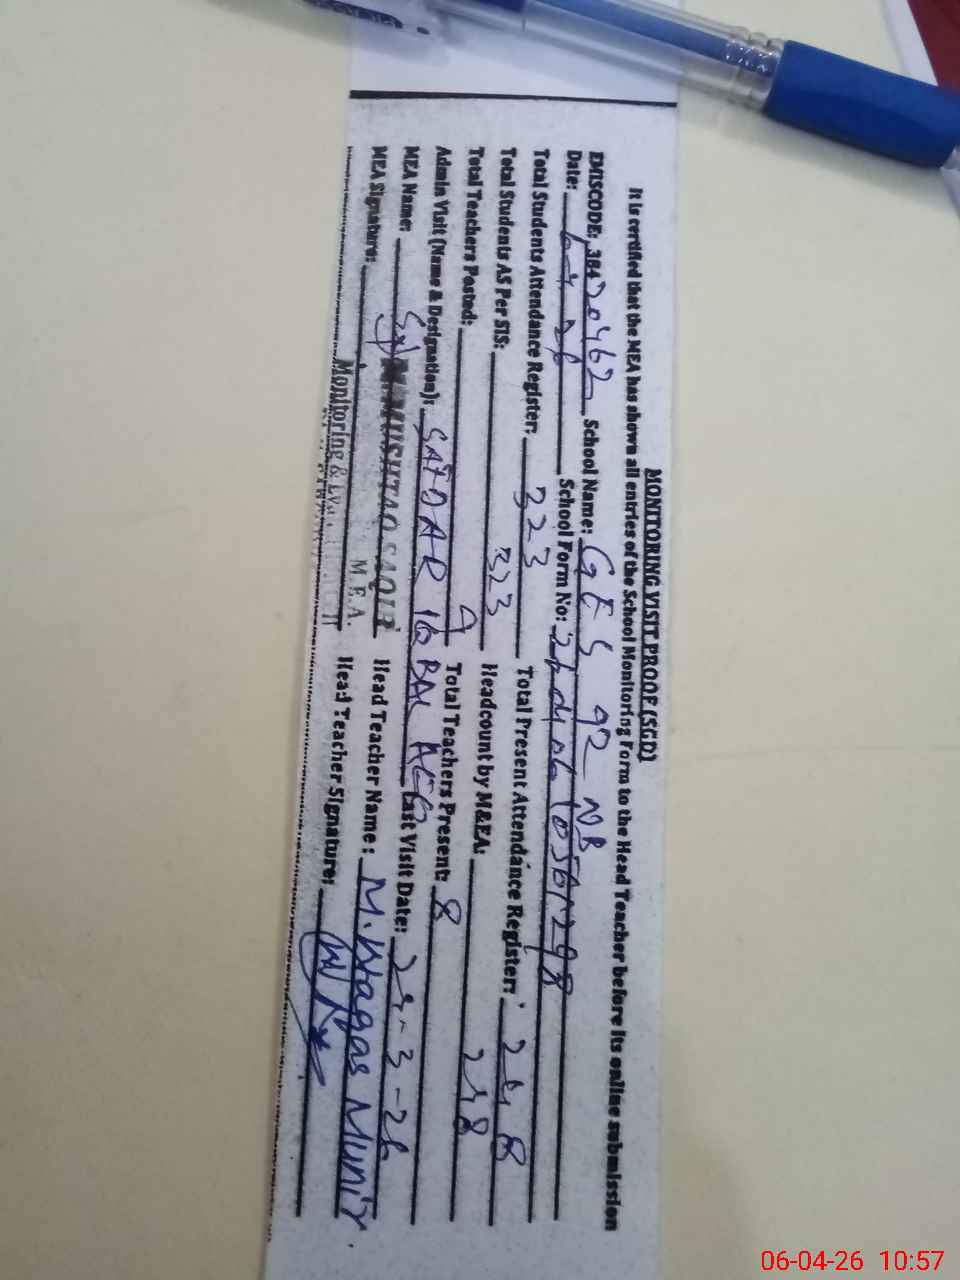 MONITORING VISIT PROOF (SGD)
It is certified that the MEA has shown all entries of the School Monitoring Form to the Head Teacher before its online submission
EMISCODE: 38420462 School Name: GES 92 NB
Date: 6-4-26 School Form No:
Total Students Attendance Register: 323 Total Present Attendance Register: 248
Total Students AS Per SIS: 323 Headcount by M&EA: 248
Total Teachers Posted: 9 Total Teachers Present: 8
Admin Visit (Name & Designation): IQBAL AEO Last Visit Date: -3-26
MEA Name: M. MUSHTAQ SAQIB Head Teacher Name: M. Waqas Munir
M.E.A.
MEA Signature: Head Teacher Signature:
Monitoring &
06-04-26 10:57